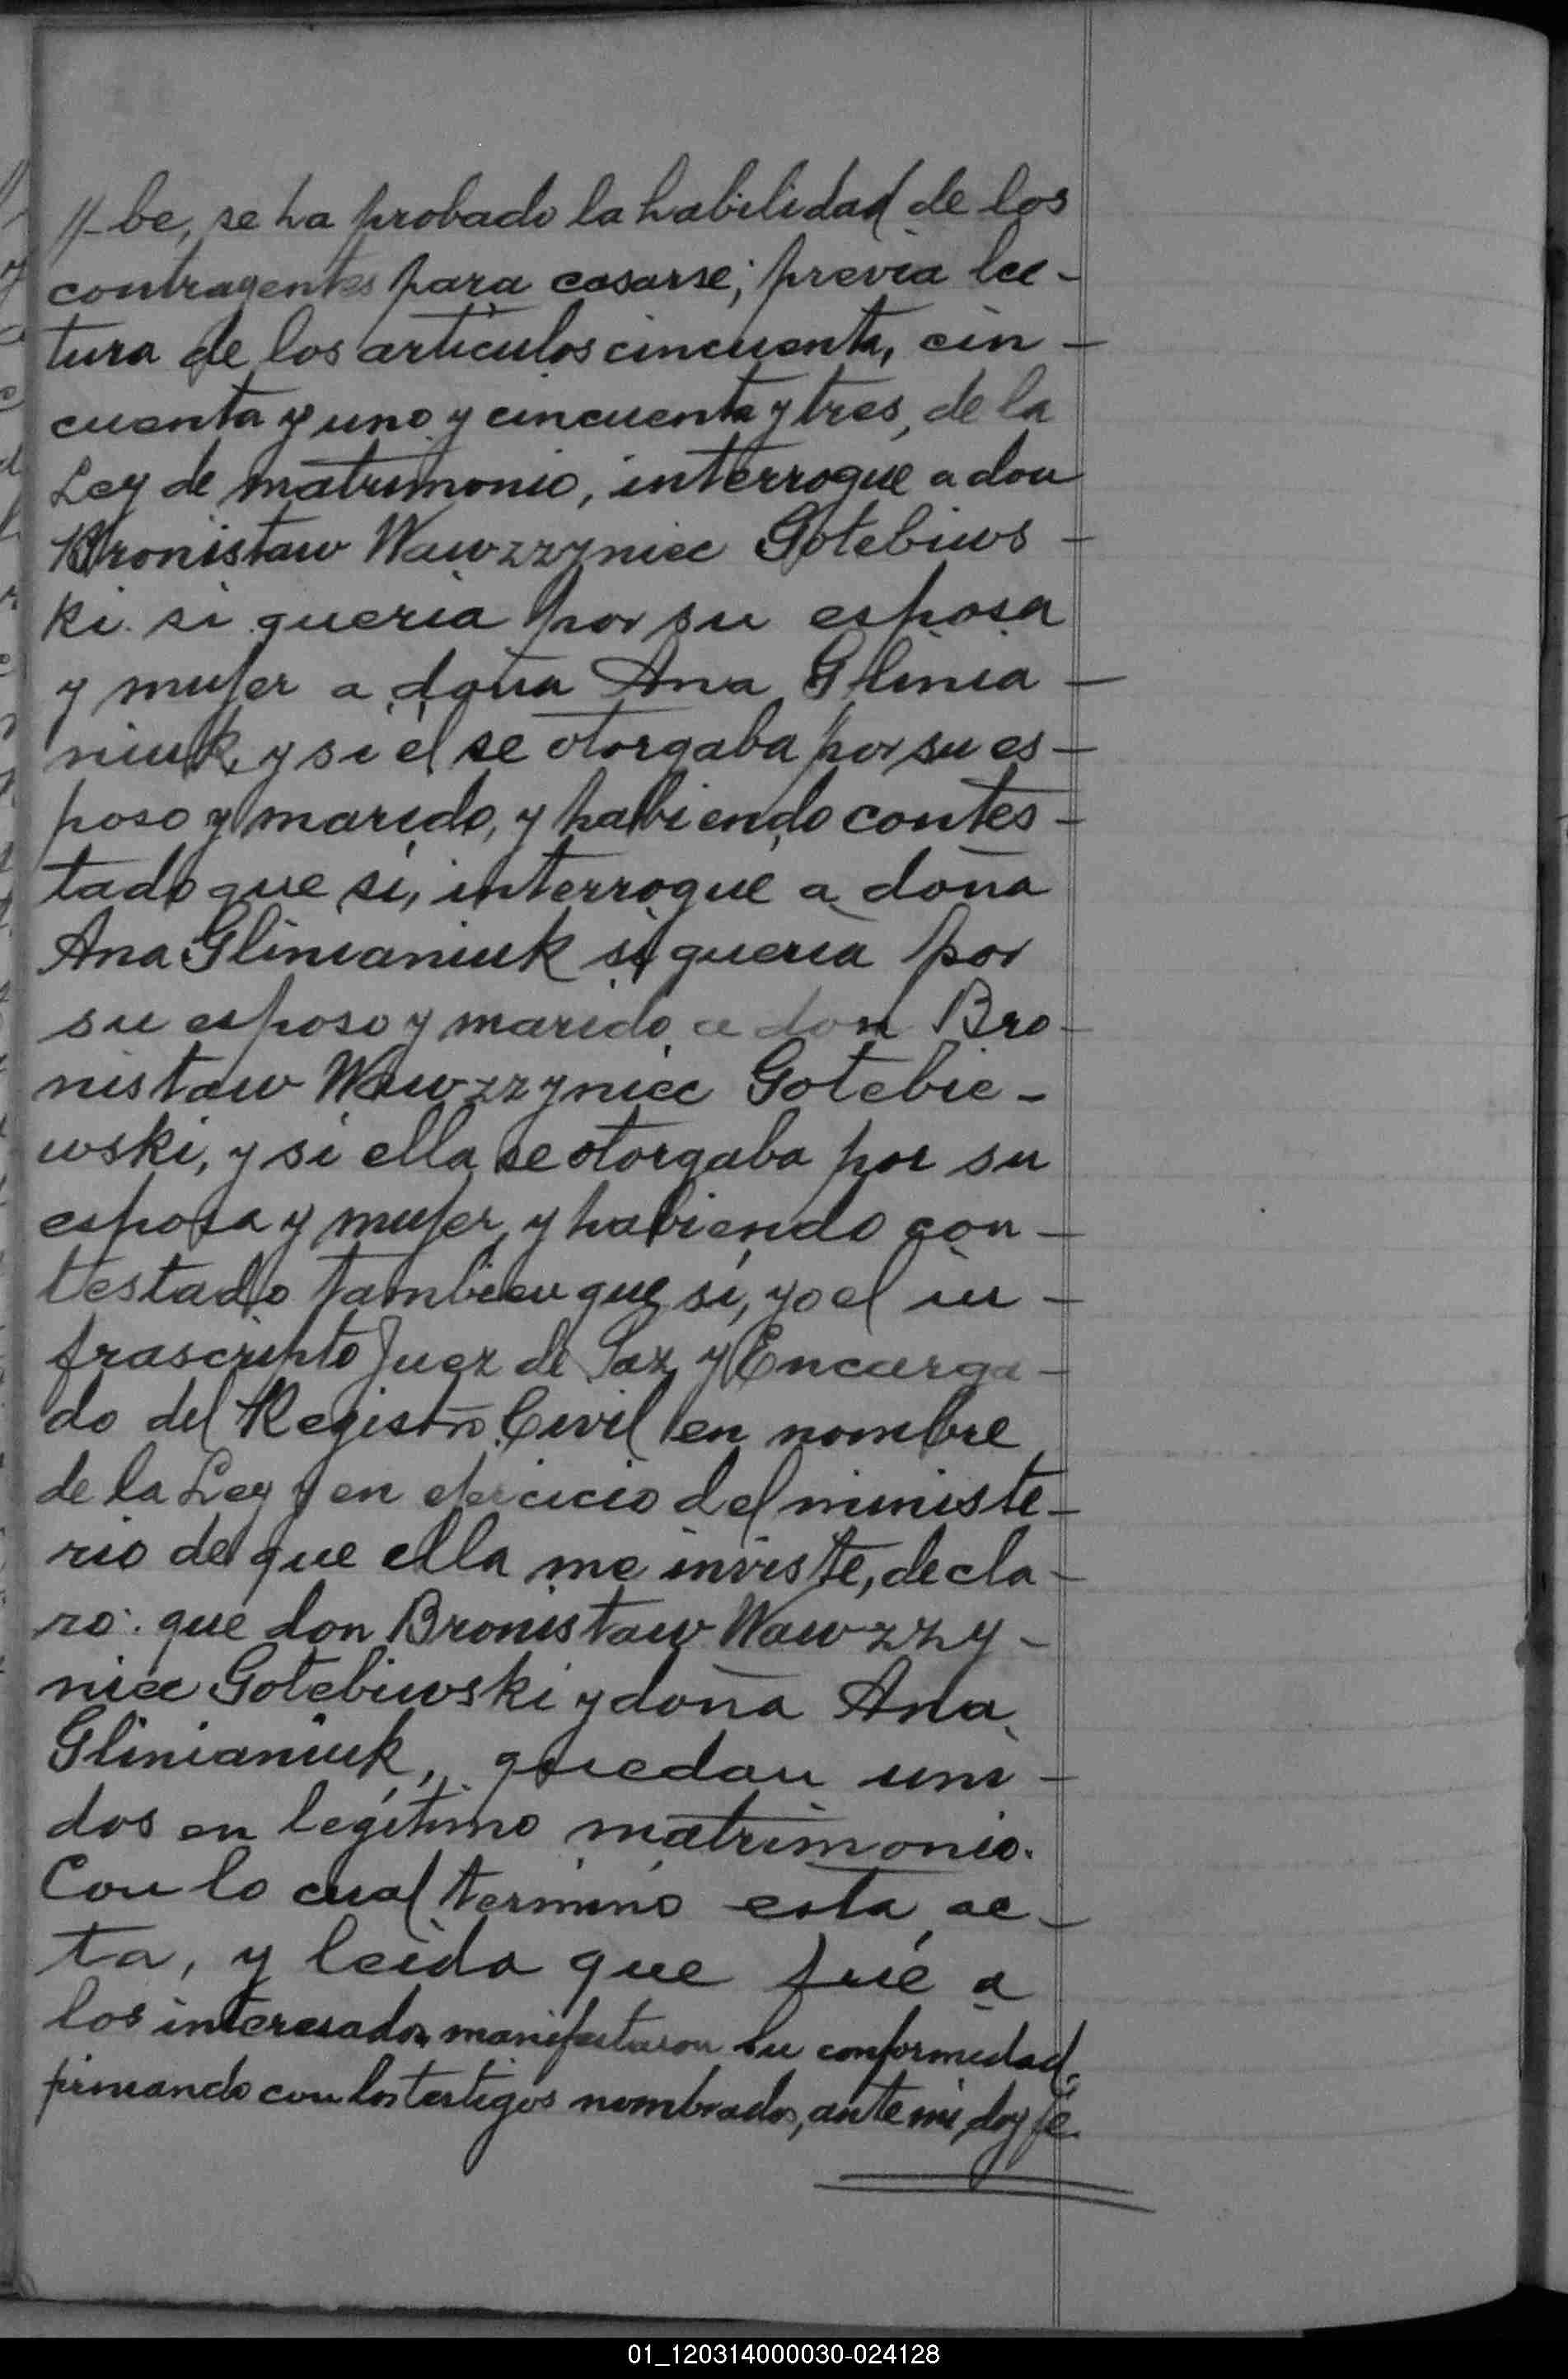 //-be, se ha probado la habilidad de los
contragentes para casarse; previa lec-
tura de los artículos cincuenta, cin-
cuenta y uno y cincuenta y tres, de la
Ley de matrimonio, interrogué a don
Bronistaw Wawzzyniec Gotebiws-
ki si queria por su esposa
y mujer a doña Ana Glinia-
niuk, y si él se otorgaba por su es-
poso y marido, y habiendo contes-
tado que sí, interrogué a doña
Ana Glinianiuk si queria por
su esposo y marido a don Bro-
nistaw Wawzzyniec Gotebie-
wski, y si ella se otorgaba por su
esposa y mujer, y habiendo con-
testado tambien que sí, yo el in-
frascripto Juez de Paz y Encarga-
do del Registro Civil en nombre
de la Ley y en ejercicio del ministe-
rio de que ella me inviste, decla-
ro: que don Bronistaw Wawzzy-
niec Gotebiwski y doña Ana
Glinianiuk, quedan uni-
dos en legítimo matrimonio.
Con lo cual terminó esta ac-
ta, y leida que fué a
los interesados manifestaron su conformidad,
firmando con los testigos nombrados, ante mi, doy fe.
01_120314000030-024128